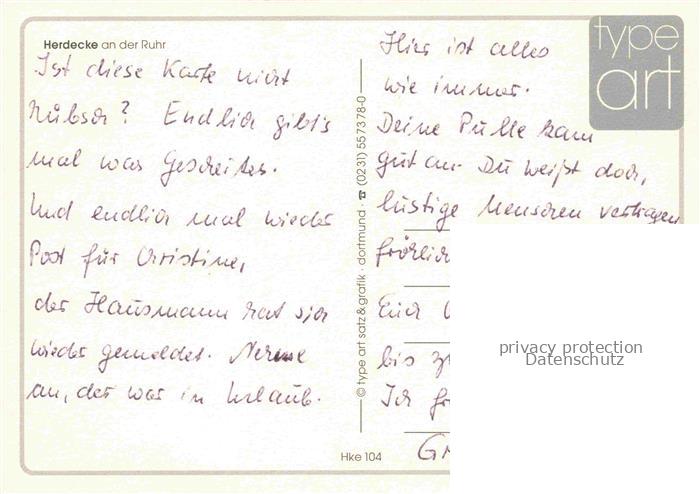 Herdecke an der Ruhr
Ist diese Karte nicht
hübsch? Endlich gibt's
mal was Gescheites.
Und endlich mal wieder
Post für Christine,
der Hausmann hat sich
wieder gemeldet. Nehme
an, der war in Urlaub.
Hier ist alles
wie immer.
Deine Pulle kam
gut an. Du weißt doch,
lustige Menschen vertragen
fröhlich
Euch
bis
Ich
© type art satz & grafik · dortmund · ☎ (0231) 557378-0
Hke 104
type
art
privacy protection
Datenschutz